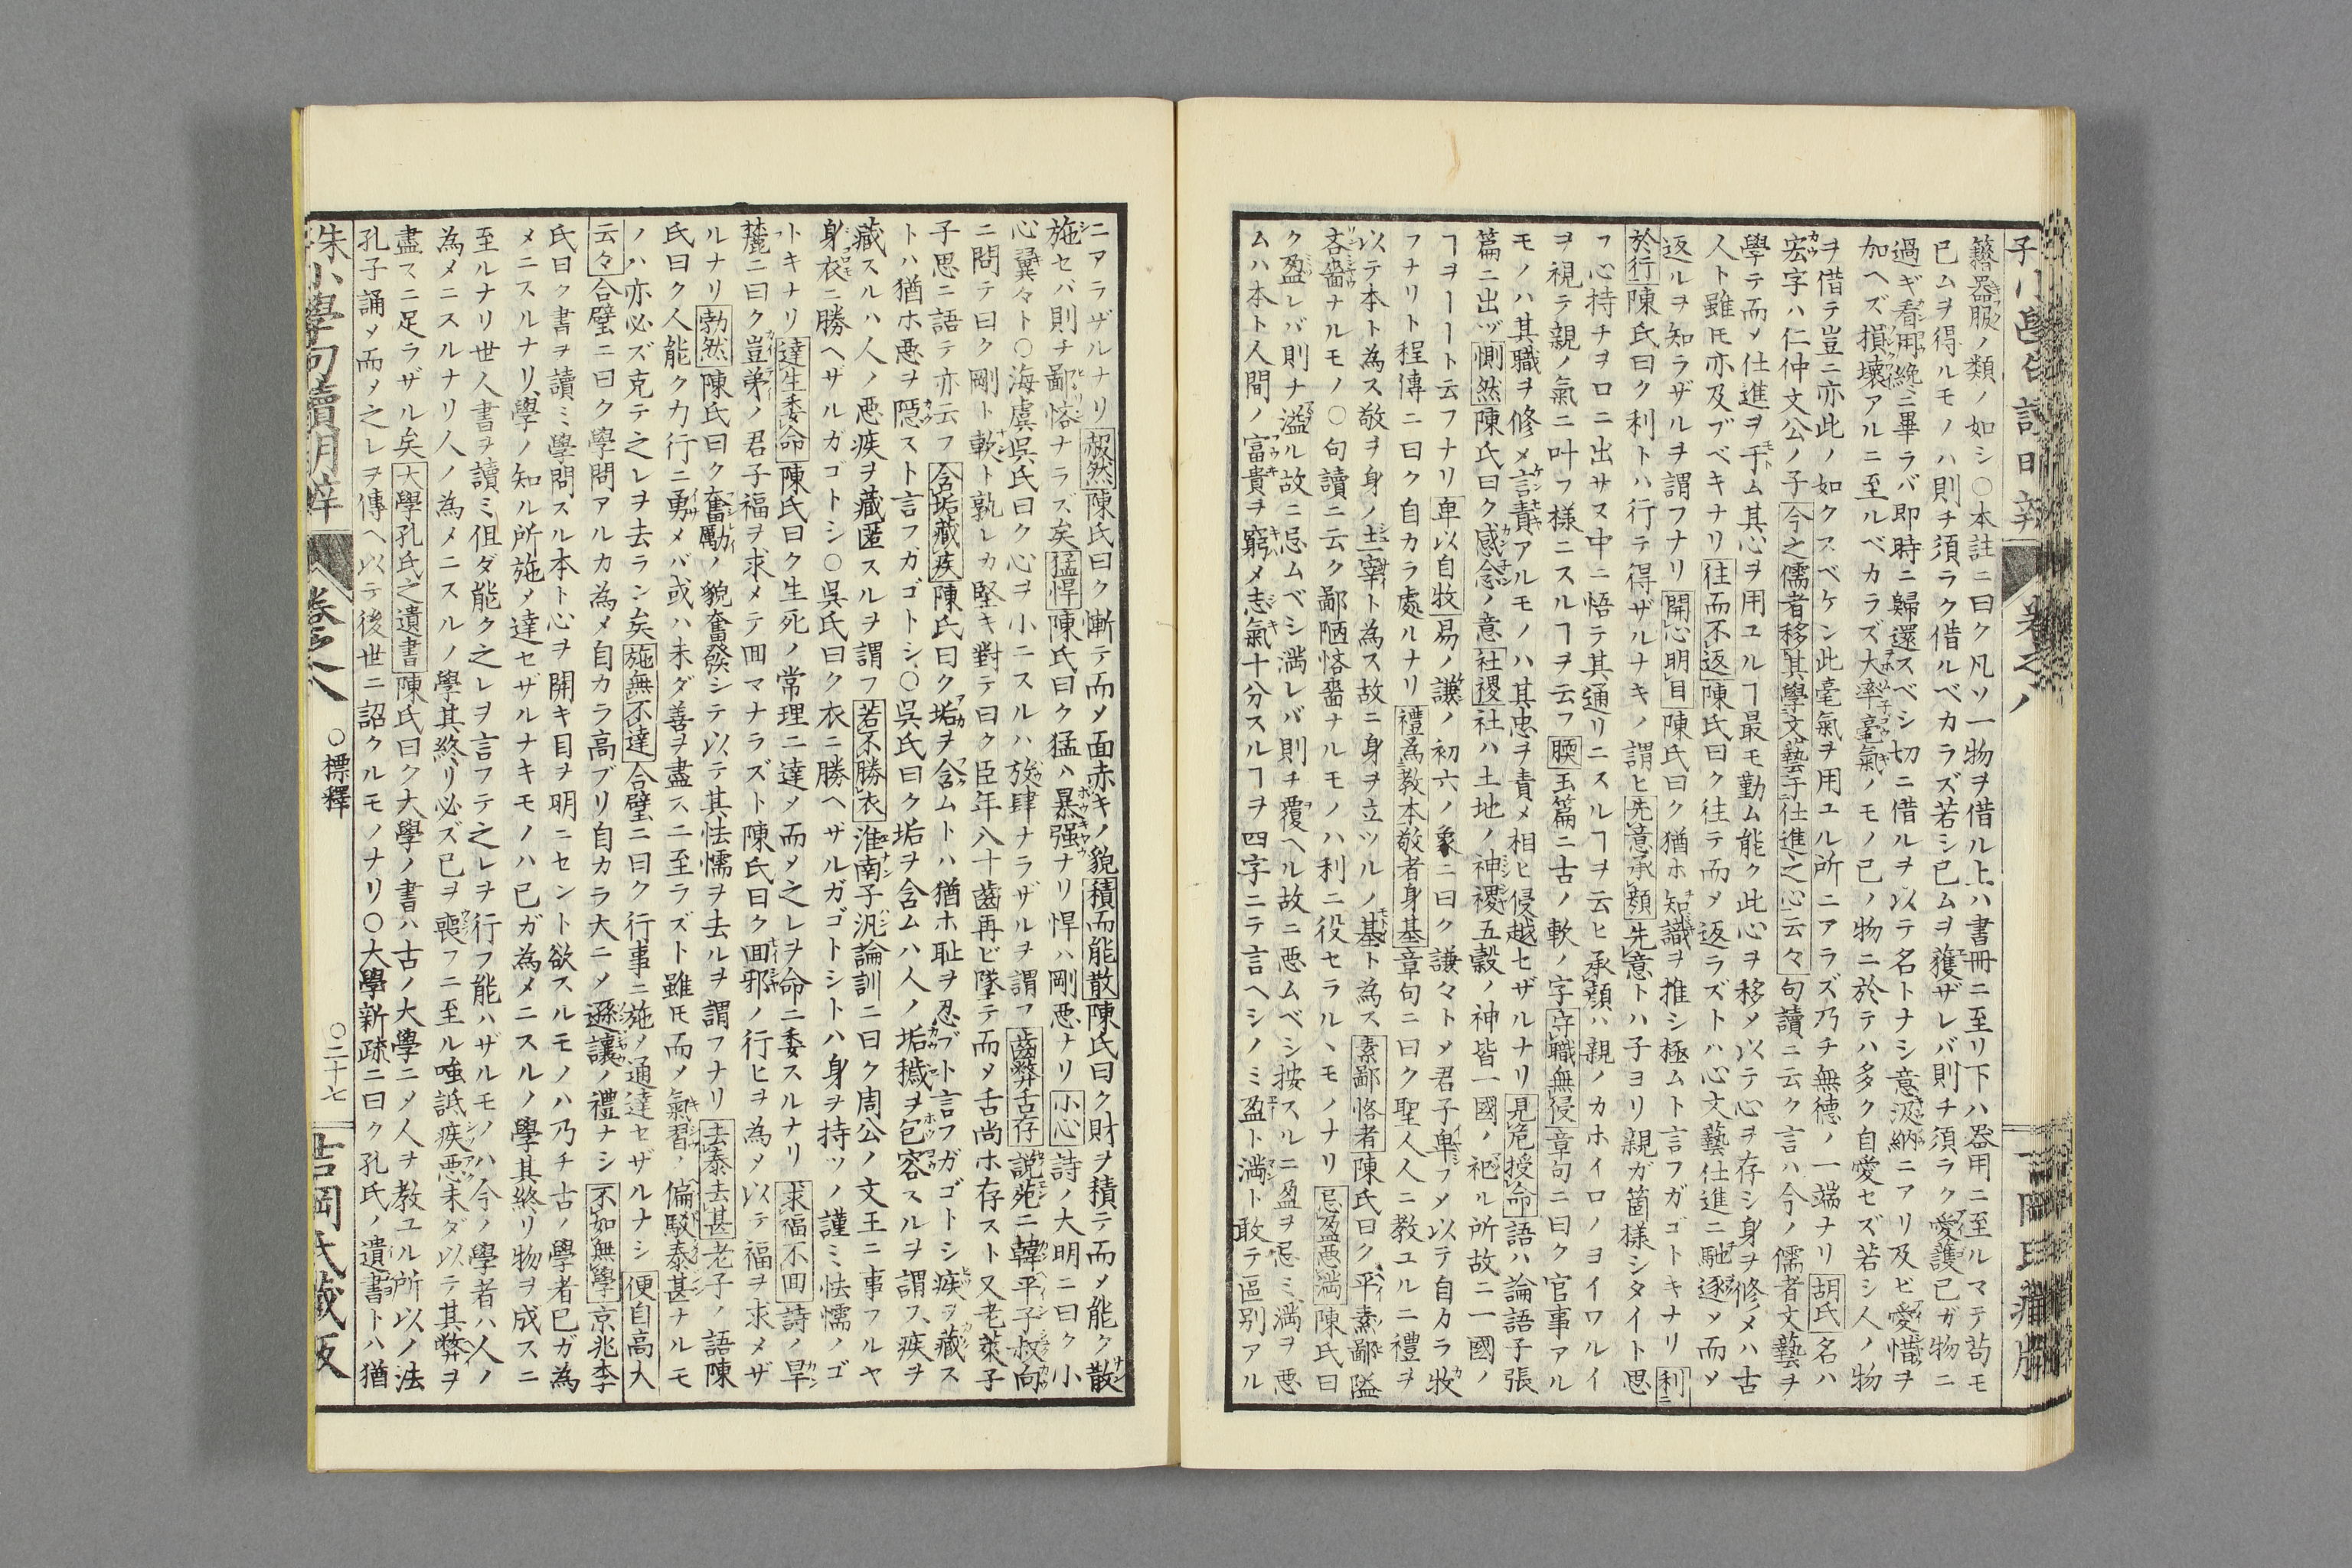 籍器服ノ類ノ如シ○本註ニ曰ク凡ソ一物ヲ借ル上ハ書冊ニ至リ下ハ器用ニ至ルマテ苟モ
已ムヲ得ルモノハ則チ須ラク借ルベカラズ若シ已ムヲ獲ザレバ則チ須ラク愛護已ガ物ニ
過ギ看用纔ニ畢ラバ即時ニ歸還スベシ切ニ借ルヲ以テ名トナシ意汲納ニアリ及ビ愛惜ヲ
加ヘズ損壊アルニ至ルベカラズ大率毫氣ノモノ已ノ物ニ於テハ多ク自愛セズ若シ人ノ物
ヲ借テ豈ニ亦此ノ如クスベケン此毫氣ヲ用ユル所ニアラズ乃チ無徳ノ一端ナリ胡氏名ハ
宏字ハ仁仲文公ノ子今之儒者移其學文藝于仕進之心云々句讀ニ云ク言ハ今ノ儒者文藝ヲ
學テ而メ仕進ヲ于ム其心ヲ用ユルヿ最モ勤ム能ク此心ヲ移メ以テ心ヲ存シ身ヲ修メハ古
人ト雖𪜈亦及ブベキナリ往而不返陳氏曰ク往テ而メ返ラズトハ心文藝仕進ニ馳逐ソ而メ
返ルヲ知ラザルヲ謂フナリ開心明目陳氏曰ク猶ホ知識ヲ推シ極ムト言フガゴトキナリ利ニ
於行陳氏曰ク利トハ行テ得ザルナキノ謂ヒ先意承顏先意トハ子ヨリ親ガ箇様シタイト思
フ心持チヲロニ出サヌ中ニ悟テ其通リニスルヿヲ云ヒ承顏ハ親ノカホイロノヨイワルイ
ヲ視テ親ノ氣ニ叶フ様ニスルヿヲ云フ腰玉篇ニ古ノ軟ノ字守職無侵章句ニ曰ク官事アル
モノハ其職ヲ修メ言責アルモノハ其忠ヲ責メ相ヒ侵越セザルナリ見危授命語ハ論語子張
篇ニ出ヅ惻然陳氏曰ク感念ノ意社稷社ハ土地ノ神稷五穀ノ神皆一國ノ祀ル所故ニ一國ノ
ヿヲーート云フナリ卑以自牧易ノ謙ノ初六ノ象ニ曰ク謙々トメ君子卑フメ以テ自カラ牧
フナリト程傳ニ曰ク自カラ處ルナリ禮爲教本敬者身基章句ニ曰ク聖人人ニ教ユルニ禮ヲ
以テ本ト為ス敬ヲ身ノ主宰ト為ス故ニ身ヲ立ツルノ基ト為ス素鄙悋者陳氏曰ク平素鄙隘
吝嗇ナルモノ○句讀ニ云ク鄙陋悋嗇ナルモノハ利ニ役セラルヽモノナリ忌盈惡満陳氏曰
ク盈レバ則ナ溢ル故ニ忌ムベシ満レバ則チ覆ヘル故ニ悪ムベシ按スルニ盈ヲ忌ミ満ヲ悪
ムハ本ト人間ノ富貴ヲ窮メ志氣十分スルヿヲ四字ニテ言ヘシノミ盈ト満ト敢テ區別アル
ニアラザルナリ赧然陳氏曰ク慚テ而メ面赤キノ貌積而能散陳氏曰ク財ヲ積テ而メ能ク散
施セバ則チ鄙悋ナラズ矣猛悍陳氏曰ク猛ハ暴强ナリ悍ハ剛悪ナリ小心詩ノ大明ニ曰ク小
心翼々ト○海虞吳氏曰ク心ヲ小ニスルハ放肆ナラザルヲ謂フ齒弊舌存説苑ニ韓平子叔向
ニ問テ曰ク剛ト軟ト孰レカ堅キ對テ曰ク臣年八十齒再ビ墜テ而メ舌尚ホ存スト又老萊子
子思ニ語テ亦云フ含垢藏疾陳氏曰ク垢ヲ含ムトハ猶ホ耻ヲ忍ブト言フガゴトシ疾ヲ藏ス
トハ猶ホ悪ヲ隱スト言フガゴトシ○吳氏曰ク垢ヲ含ムハ人ノ垢穢ヲ包容スルヲ謂フ疾ヲ
藏スルハ人ノ悪疾ヲ藏匿スルヲ謂フ若不勝衣淮南子汎論訓ニ曰ク周公ノ文王ニ事フルヤ
身衣ニ勝ヘザルガゴトシ○吳氏曰ク衣ニ勝ヘザルガゴトシトハ身ヲ持ツノ謹ミ怯懦ノゴ
トキナリ達生委命陳氏曰ク生死ノ常理ニ達メ而メ之レヲ命ニ委スルナリ求福不回詩ノ旱
麓ニ曰ク豈弟ノ君子福ヲ求メテ回マナラズト陳氏曰ク回邪ノ行ヒヲ為メ以テ福ヲ求メザ
ルナリ勃然陳氏曰ク奮勵ノ貌奮發シテ以テ其怯懦ヲ去ルヲ謂フナリ去泰去甚老子ノ語陳
氏曰ク人能ク力行ニ勇メバ或ハ未ダ善ヲ盡スニ至ラズト雖𪜈而メ氣習ノ偏駁泰甚ナルモ
ノハ亦必ズ克テ之レヲ去ラン矣施無不達合璧ニ曰ク行事ニ施メ通達セザルナシ便自高大
云々合璧ニ曰ク學問アルカ為メ自カラ高ブリ自カラ大ニメ遜讓ノ禮ナシ不如無學京兆李
氏曰ク書ヲ讀ミ學問スル本ト心ヲ開キ目ヲ明ニセント欲スルモノハ乃チ古ノ學者已ガ為
メニスルナリ學ノ知ル所施メ達セザルナキモノハ已ガ為メニスルノ學其終リ物ヲ成スニ
至ルナリ世人書ヲ讀ミ伹ダ能ク之レヲ言フテ之レヲ行フ能ハザルモノハ今ノ學者ハ人ノ
為メニスルナリ人ノ為メニスルノ學其終リ必ズ已ヲ喪フニ至ル嗤詆疾悪未ダ以テ其弊ヲ
盡スニ足ラザル矣大學孔氏之遺書陳氏曰ク大學ノ書ハ古ノ大學ニメ人ヲ教ユル所以ノ法
孔子誦メ而メ之レヲ傳ヘ以テ後世ニ詔クルモノナリ○大學新疏ニ曰ク孔氏ノ遺書トハ猶
朱子小學句讀明辨 卷之八 ○標釋 ○二十七 吉岡氏藏版